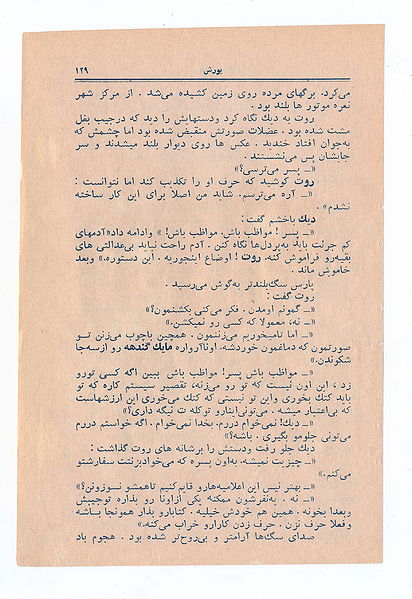 یورش ۱۲۹
می‌کرد، برگهای مرده روی زمین کشیده می‌شد . از مرکز شهر
نعره موتور ها بلند بود .
روت به دیك نگاه کرد ودستهایش را دید که درجیب بغل
مشت شده بود . عضلات صورتش منقبض شده بود اما چشمش که
به‌جوان افتاد خندید . عکس ها روی دیوار بلند میشدند و سر
جایشان پس می‌نشستند .
«ـ پسر می‌ترسی؟»
روت کوشید که حرف او را تکذیب کند اما نتوانست :
«ـ آره می‌ترسم. شاید من اصلا برای این کار ساخته
نشدم» .
دیك باخشم گفت :
«ـ پسر ! مواظب باش. مواظب باش! » وادامه داد«آدمهای
کم جرئت باید به‌پردل‌ها نگاه کنن . آدم راحت نباید بی‌عدالتی های
بقیه‌رو فراموش کنه. روت ! اوضاع اینجوریه . این دستوره.» وبعد
خاموش ماند .
پارس سگ‌بلندتر به‌گوش می‌رسید .
روت گفت :
«ـ گمونم اومدن . فکر می‌کنی بکشنمون؟»
«ـ نه، معمولا که کسی رو نمیکشن.»
«ـ اما تامیخوریم می‌زننمون . همچین باچوب می‌زنن تـو
صورتمون که دماغمون خوردشه. اوناآرواره مایك گندهه رو ازسه‌جا
شکوندن.»
«ـ مواظب باش پسر! مواظب باش ببین اگه کسی تورو
زد ، این اون نیست که تو رو می‌زنه، تقصیر سیستم کاره که تو
باید کتك بخوری واین تو نیستی که کتك می‌خوری این ارزشهاست
که بی‌اعتبار میشه . می‌تونی‌اینارو توکله ت نیگه داری؟»
«ـ دیك! نمی‌خوام دررم. بخدا نمی‌خوام . اگه خواستم دررم
می‌تونی جلومو بگیری . باشه؟»
دیك جلو رفت ودستش را برشانه های روت گذاشت :
«ـ چیزیت نمیشه. به‌اون پسره که می‌خوادبزنتت سفارشتو
می‌کنم.»
«ـ بهتر نیس این اعلامیه‌هارو قایم‌کنیم تاهمشو نسوزونن؟»
«ـ نه . یه‌نفرشون ممکنه یکی ازاونا رو بذاره توجیبش
وبعدا بخونه . همین هم خودش خیلیه . کتابارو بذار همونجا بـاشه
وفعلا حرف نزن . حرف زدن کارارو خراب می‌کنه.»
صدای سگ‌ها آرامتر و بی‌روح‌تر شده بود . هجوم باد